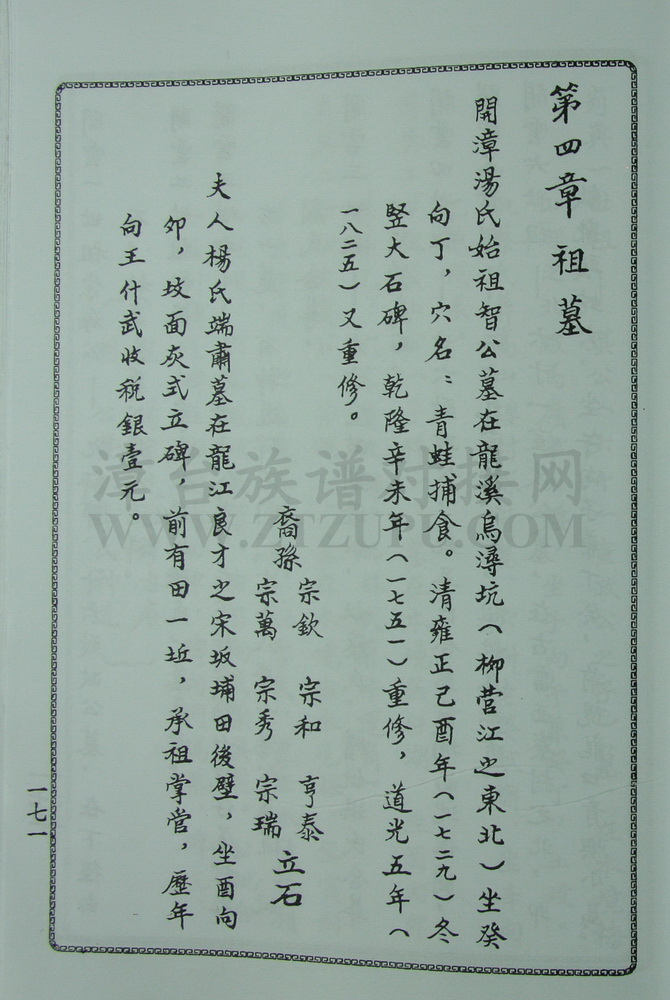 第四章祖墓
開漳湯氏始祖智公墓在龍溪烏潯坑（柳营江之東北）坐癸
向丁，穴名：青蛙捕食。清雍正己酉年（一七二九）冬
竖大石碑，乾隆辛未年（一七五一）重修，道光五年（
一八二五）又重修。
裔孫
宗欽 宗和 亨泰
宗萬 宗秀 宗瑞
立石
夫人楊氏端肅墓在龍江良才之宋坂埔田後壁，坐酉向
卯，坟面灰式立碑，前有田一坵，承祖掌营，歷年
向王什武收税銀壹元。
一七一
漳台族谱对接网
WWW.ZTZUPU.COM